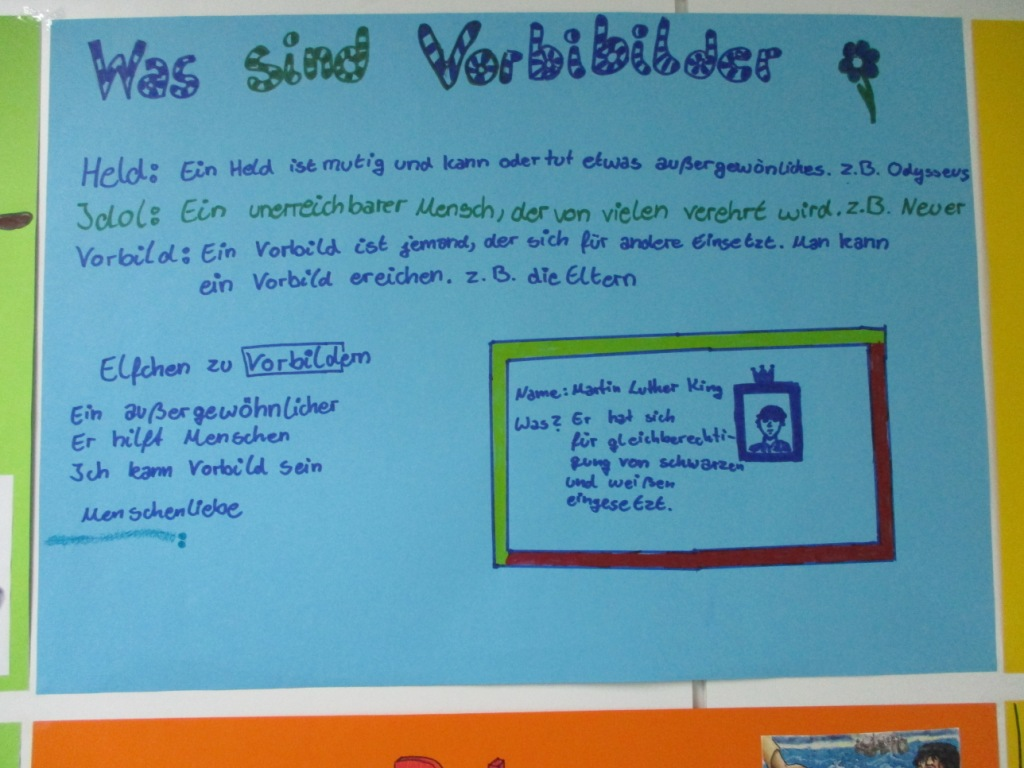 Was sind Vorbibilder
Held: Ein Held ist mutig und kann oder tut etwas außergewönliches. z.B. Odysseus
Idol: Ein unerreichbarer Mensch, der von vielen verehrt wird. z.B. Neuer
Vorbild: Ein Vorbild ist jemand, der sich für andere Einsetzt. Man kann
ein Vorbild ereichen. z.B. die Eltern
Elfchen zu Vorbildern
Ein außergewöhnlicher
Er hilft Menschen
Ich kann Vorbild sein
Menschenliebe
Name: Martin Luther King
Was? Er hat sich
für gleichberechti-
gung von schwarzen
und weißen
eingesetzt.